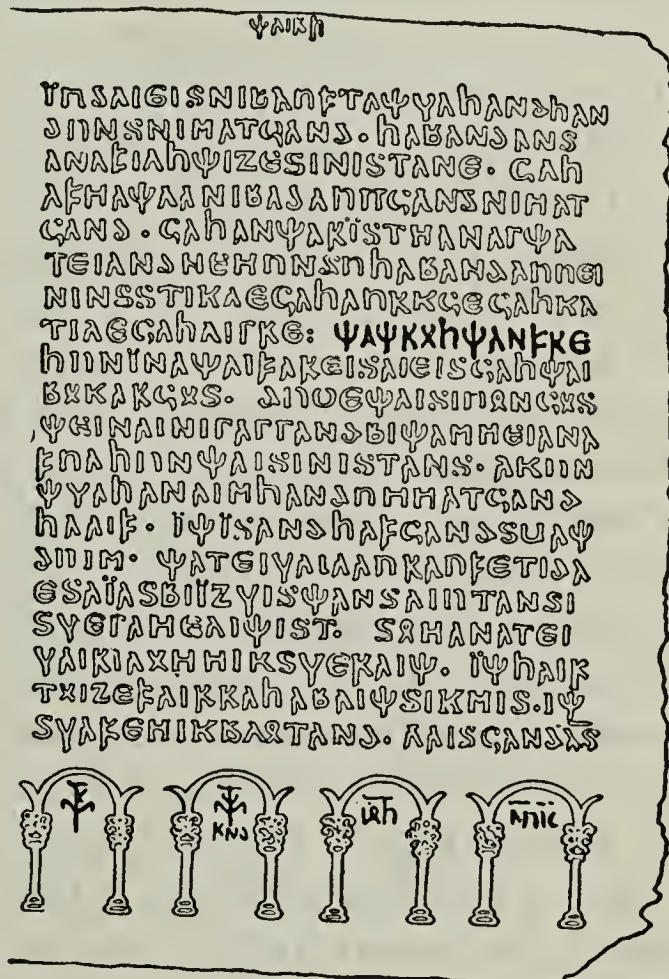 𐌸𐌰𐌹𐍂𐌷
𐌹̈𐌿𐌳𐌰𐌹𐌴𐌹𐍃𐌽𐌹𐌱𐌰𐌿𐍆𐍄𐌰𐌸𐍅𐌰𐌷𐌰𐌽𐌳𐌷𐌰𐌽
𐌳𐌿𐌽𐍃𐌽𐌹𐌼𐌰𐍄𐌾𐌰𐌽𐌳·𐌷𐌰𐌱𐌰𐌽𐌳𐌰𐌽𐍃
𐌰𐌽𐌰𐍆𐌹𐌻𐌷𐌸𐌹𐌶𐌴𐍃𐌹𐌽𐌹𐍃𐍄𐌰𐌽𐌴·𐌾𐌰𐌷
𐌰𐍆𐌼𐌰𐌸𐌻𐌰𐌽𐌹𐌱𐌰𐌳𐌰𐌿𐍀𐌾𐌰𐌽𐌳𐌽𐌹𐌼𐌰𐍄
𐌾𐌰𐌽𐌳·𐌾𐌰𐌷𐌰𐌽𐌸𐌰𐍂𐌹̈𐍃𐍄𐌼𐌰𐌽𐌰𐌲𐌸𐌰
𐍄𐌴𐌹𐌰𐌽𐌳𐌽𐌴𐌼𐌿𐌽𐌳𐌿𐌷𐌰𐌱𐌰𐌽𐌳𐌰𐌿𐍀𐌴𐌹
𐌽𐌹𐌽𐍃𐍃𐍄𐌹𐌺𐌻𐌴𐌾𐌰𐌷𐌰𐌿𐍂𐌺𐌾𐌴𐌾𐌰𐌷𐌺𐌰
𐍄𐌹𐌻𐌴𐌾𐌰𐌷𐌻𐌹𐌲𐍂𐌴: 𐌸𐌰𐌸𐍂𐍉𐌷𐌸𐌰𐌽𐍆𐍂𐌴
𐌷𐌿𐌽𐌹̈𐌽𐌰𐌸𐌰𐌹𐍆𐌰𐍂𐌴𐌹𐍃𐌰𐌹𐌴𐌹𐍃𐌾𐌰𐌷𐌸𐌰𐌹
𐌱𐍉𐌺𐌰𐍂𐌾𐍉𐍃· 𐌳𐌿𐍈𐌴𐌸𐌰𐌹𐍃𐌹𐍀𐍉𐌽𐌾𐍉𐍃
𐌸𐌴𐌹𐌽𐌰𐌹𐌽𐌹𐌲𐌰𐌲𐌲𐌰𐌽𐌳𐌱𐌹𐌸𐌰𐌼𐌼𐌴𐌹𐌰𐌽𐌰
𐍆𐌿𐌻𐌷𐌿𐌽𐌸𐌰𐌹𐍃𐌹𐌽𐌹𐍃𐍄𐌰𐌽𐍃·𐌰𐌺𐌿𐌽
𐌸𐍅𐌰𐌷𐌰𐌽𐌰𐌹𐌼𐌷𐌰𐌽𐌳𐌿𐌼𐌼𐌰𐍄𐌾𐌰𐌽𐌳
𐌷𐌻𐌰𐌹𐍆· 𐌹̈𐌸𐌹̈𐍃𐌰𐌽𐌳𐌷𐌰𐍆𐌾𐌰𐌽𐌳𐍃𐌵𐌰𐌸
𐌳𐌿𐌹𐌼· 𐌸𐌰𐍄𐌴𐌹𐍅𐌰𐌹𐌻𐌰𐍀𐍂𐌰𐌿𐍆𐌴𐍄𐌹𐌳𐌰
𐌴𐍃𐌰𐌹̈𐌰𐍃𐌱𐌹𐌹̈𐌶𐍅𐌹𐍃𐌸𐌰𐌽𐍃𐌻𐌹𐌿𐍄𐌰𐌽𐍃
𐍃𐍅𐌴𐌲𐌰𐌼𐌴𐌻𐌹𐌸𐌹𐍃𐍄· 𐍃𐍉𐌼𐌰𐌽𐌰𐌲𐌴𐌹
𐍅𐌰𐌹𐍂𐌹𐌻𐍉𐌼𐌼𐌹𐌺𐍃𐍅𐌴𐍂𐌰𐌹𐌸· 𐌹̈𐌸𐌷𐌰𐌹𐍂
𐍄𐍉𐌹𐌶𐌴𐍆𐌰𐌹𐍂𐍂𐌰𐌷𐌰𐌱𐌰𐌹𐌸𐍃𐌹𐌺𐌼𐌹𐍃·𐌹𐌸
𐍃𐍅𐌰𐍂𐌴𐌼𐌹𐌺𐌱𐌻𐍉𐍄𐌰𐌽𐌳· 𐌻𐌰𐌹𐍃𐌾𐌰𐌽𐌳𐌰𐌽𐍃